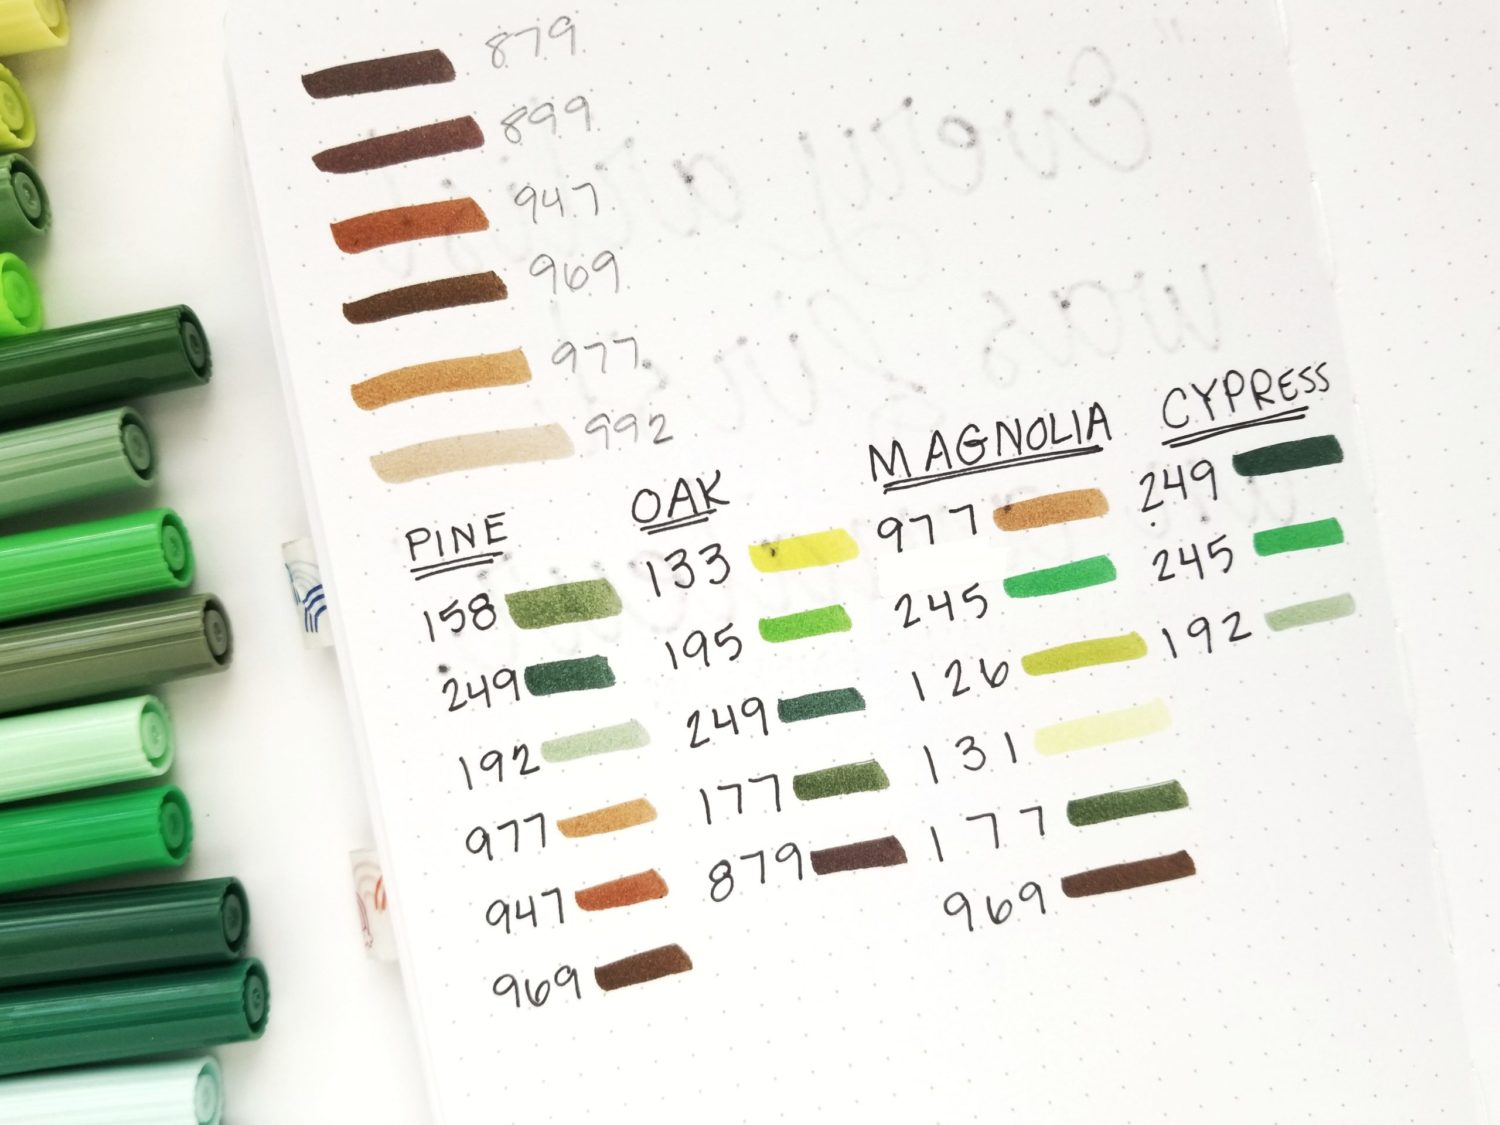 879
899
947
969
977
992
PINE
158
249
192
977
947
969
OAK
133
195
249
177
879
MAGNOLIA
977
245
126
131
177
969
CYPRESS
249
245
192
"Every artist
was first
an